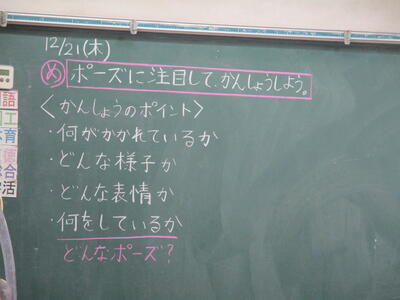 12/21(木)
め ポーズに注目して、かんしょうしよう。
〈かんしょうのポイント〉
・何がかかれているか
・どんな様子か
・どんな表情か
・何をしているか
どんなポーズ?
語
工
体育
総合
学活